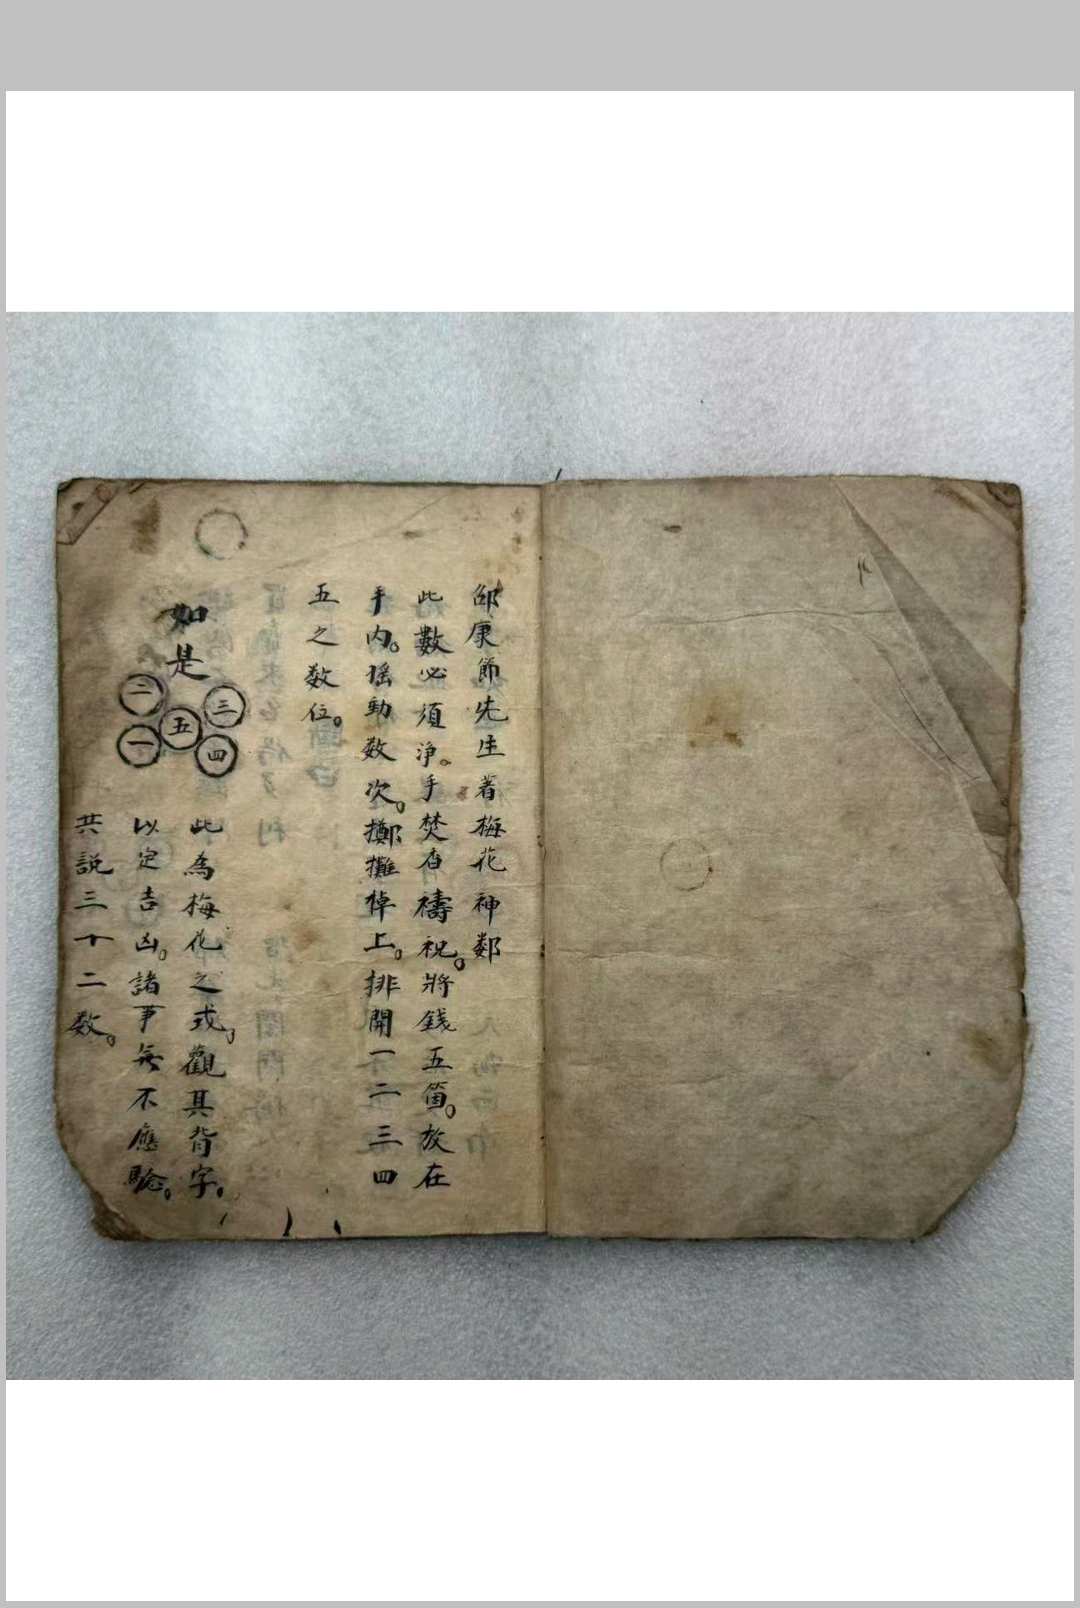 邵康節先生著梅花神鄰
此數必須净。手焚香禱祝。將錢五箇。放在
手内。搖動数次。擲攤倬上。排開一二三四
五之数位。
如是
二 三
五
一 四
此為梅花之戎。觀其背字。
以定吉凶。諸事每不應驗。
共説三十二数。